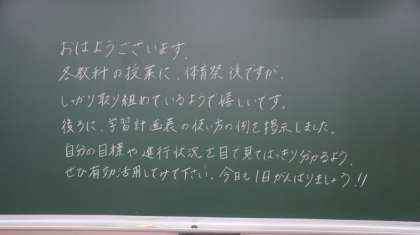 おはようございます。
各教科の授業に、体育祭後ですが、
しっかり取り組めているようで嬉しいです。
後ろに、学習計画表の使い方の例を掲示しました。
自分の目標や進行状況を目で見てはっきり分かるよう、
ぜひ有効活用してみて下さい。今日も1日がんばりましょう!!